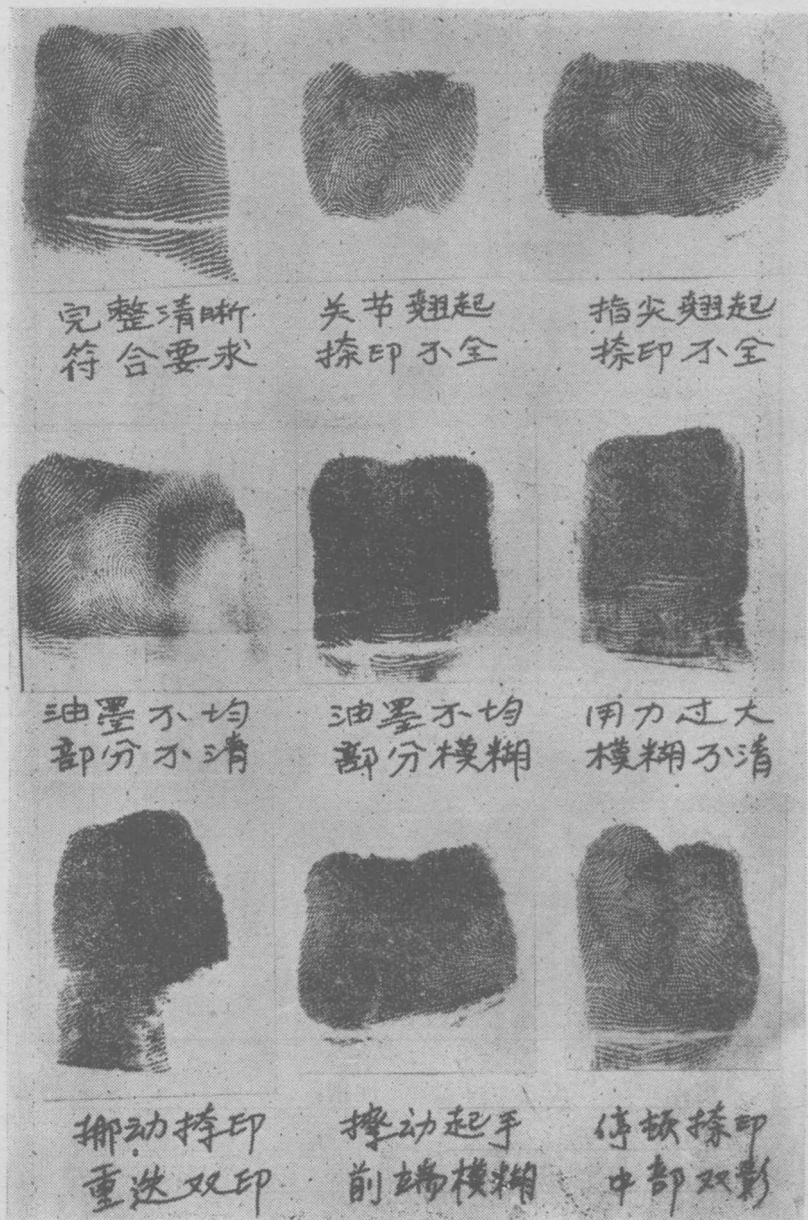 完整清晰
符合要求
关节翘起
捺印不全
指尖翘起
捺印不全
油墨不均
部分不清
油墨不均
部分模糊
用力过大
模糊不清
挪动捺印
重迭双印
擦动起手
前端模糊
停顿捺印
中部双影